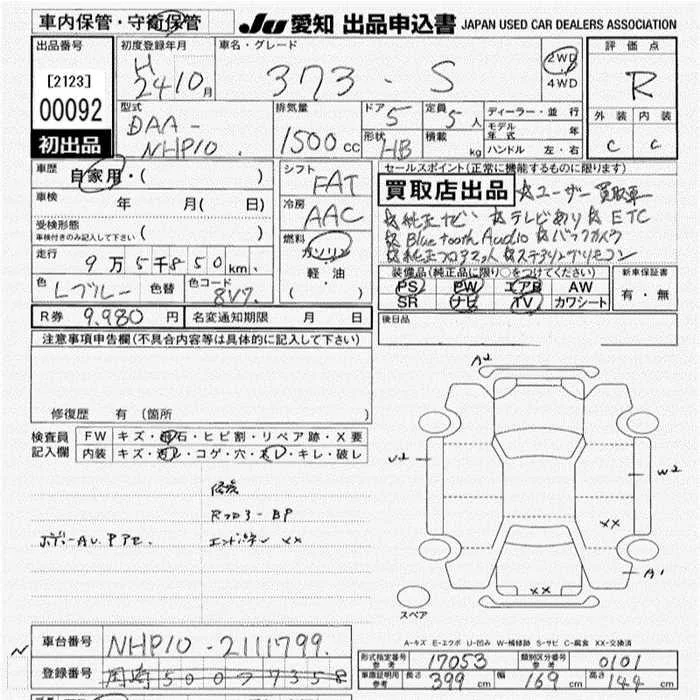 車内保管・守衛保管
JU 愛知 出品申込書 JAPAN USED CAR DEALERS ASSOCIATION
出品番号 [2123] 00092 初出品
初度登録年月 H 24 10月
車名・グレード 373 - S
2WD 4WD
評価点 R
外装 C 内装 C
型式 DAA-NHP10
排気量 1500cc
ドア 5 定員 5人
形状 HB 積載 kg
ディーラー・並行
モデル年式 年
ハンドル 左・右
車歴 自家用・( )
車検 年 月( 日)
受検形態 車検付きのみ記入して下さい ( )
走行 9万5千850km
色 Lブルー 色替 色コード 8V7
シフト FAT
冷房 AAC
燃料 ガソリン 軽油 ( )
セールスポイント(正常に機能するものに限ります)
買取店出品 ☆ユーザー買取車
☆純正ナビ ☆テレビあり ☆ETC
☆Bluetooth Audio ☆バックカメラ
☆純正フロアマット ☆ステアリングリモコン
装備品(純正品に限り○をつけてください)
PS PW エアB AW
SR ナビ TV カワシート
新車保証書 有・無
後日品
R券 9,980円 名変通知期限 月 日
注意事項申告欄(不具合内容等は具体的に記入して下さい)
修復歴 有 (箇所 )
検査員記入欄
FW キズ・飛石・ヒビ割・リペア跡・X要
内装 キズ・汚レ・コゲ・穴・スレ・キレ・破レ
修復
Rフロア-BP
エンドパネル XX
A2
U2
W2
XX
A1
XX
スペア
A-キズ E-エクボ U-凹み W-補修跡 S-サビ C-腐食 XX-交換済
車台番号 NHP10-2111799
登録番号 岡崎500 7358
形式指定番号 参考 17053 類別区分番号 参考 0101
車庫証明用 参考 長さ 399cm 幅 169cm 高さ 144cm